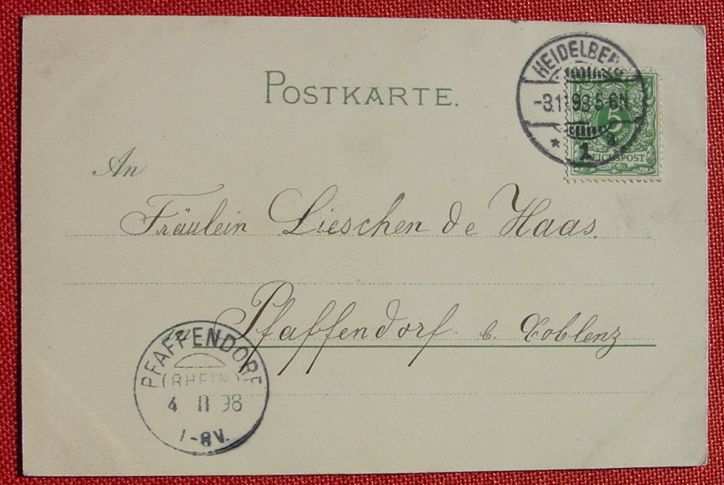 POSTKARTE.
HEIDELBER
-3.11.98.5-6N.
* 1
5
REICHSPOST
An
Fräulein Lieschen de Haas.
in
Pfaffendorf b. Coblenz
PFAFFENDORF
(RHEIN)
4 11 98
7-8V.